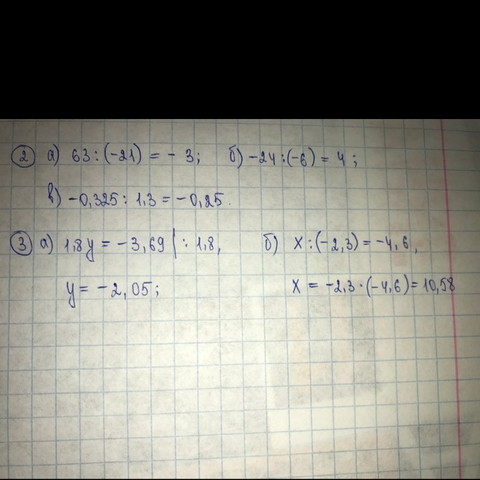 ② а) 63 : (-21) = - 3; б) -24 : (-6) = 4;
в) -0,325 : 1,3 = -0,25.
③ а) 1,8y = -3,69 | : 1,8, б) x : (-2,3) = -4,6,
y = -2,05; x = -2,3 · (-4,6) = 10,58